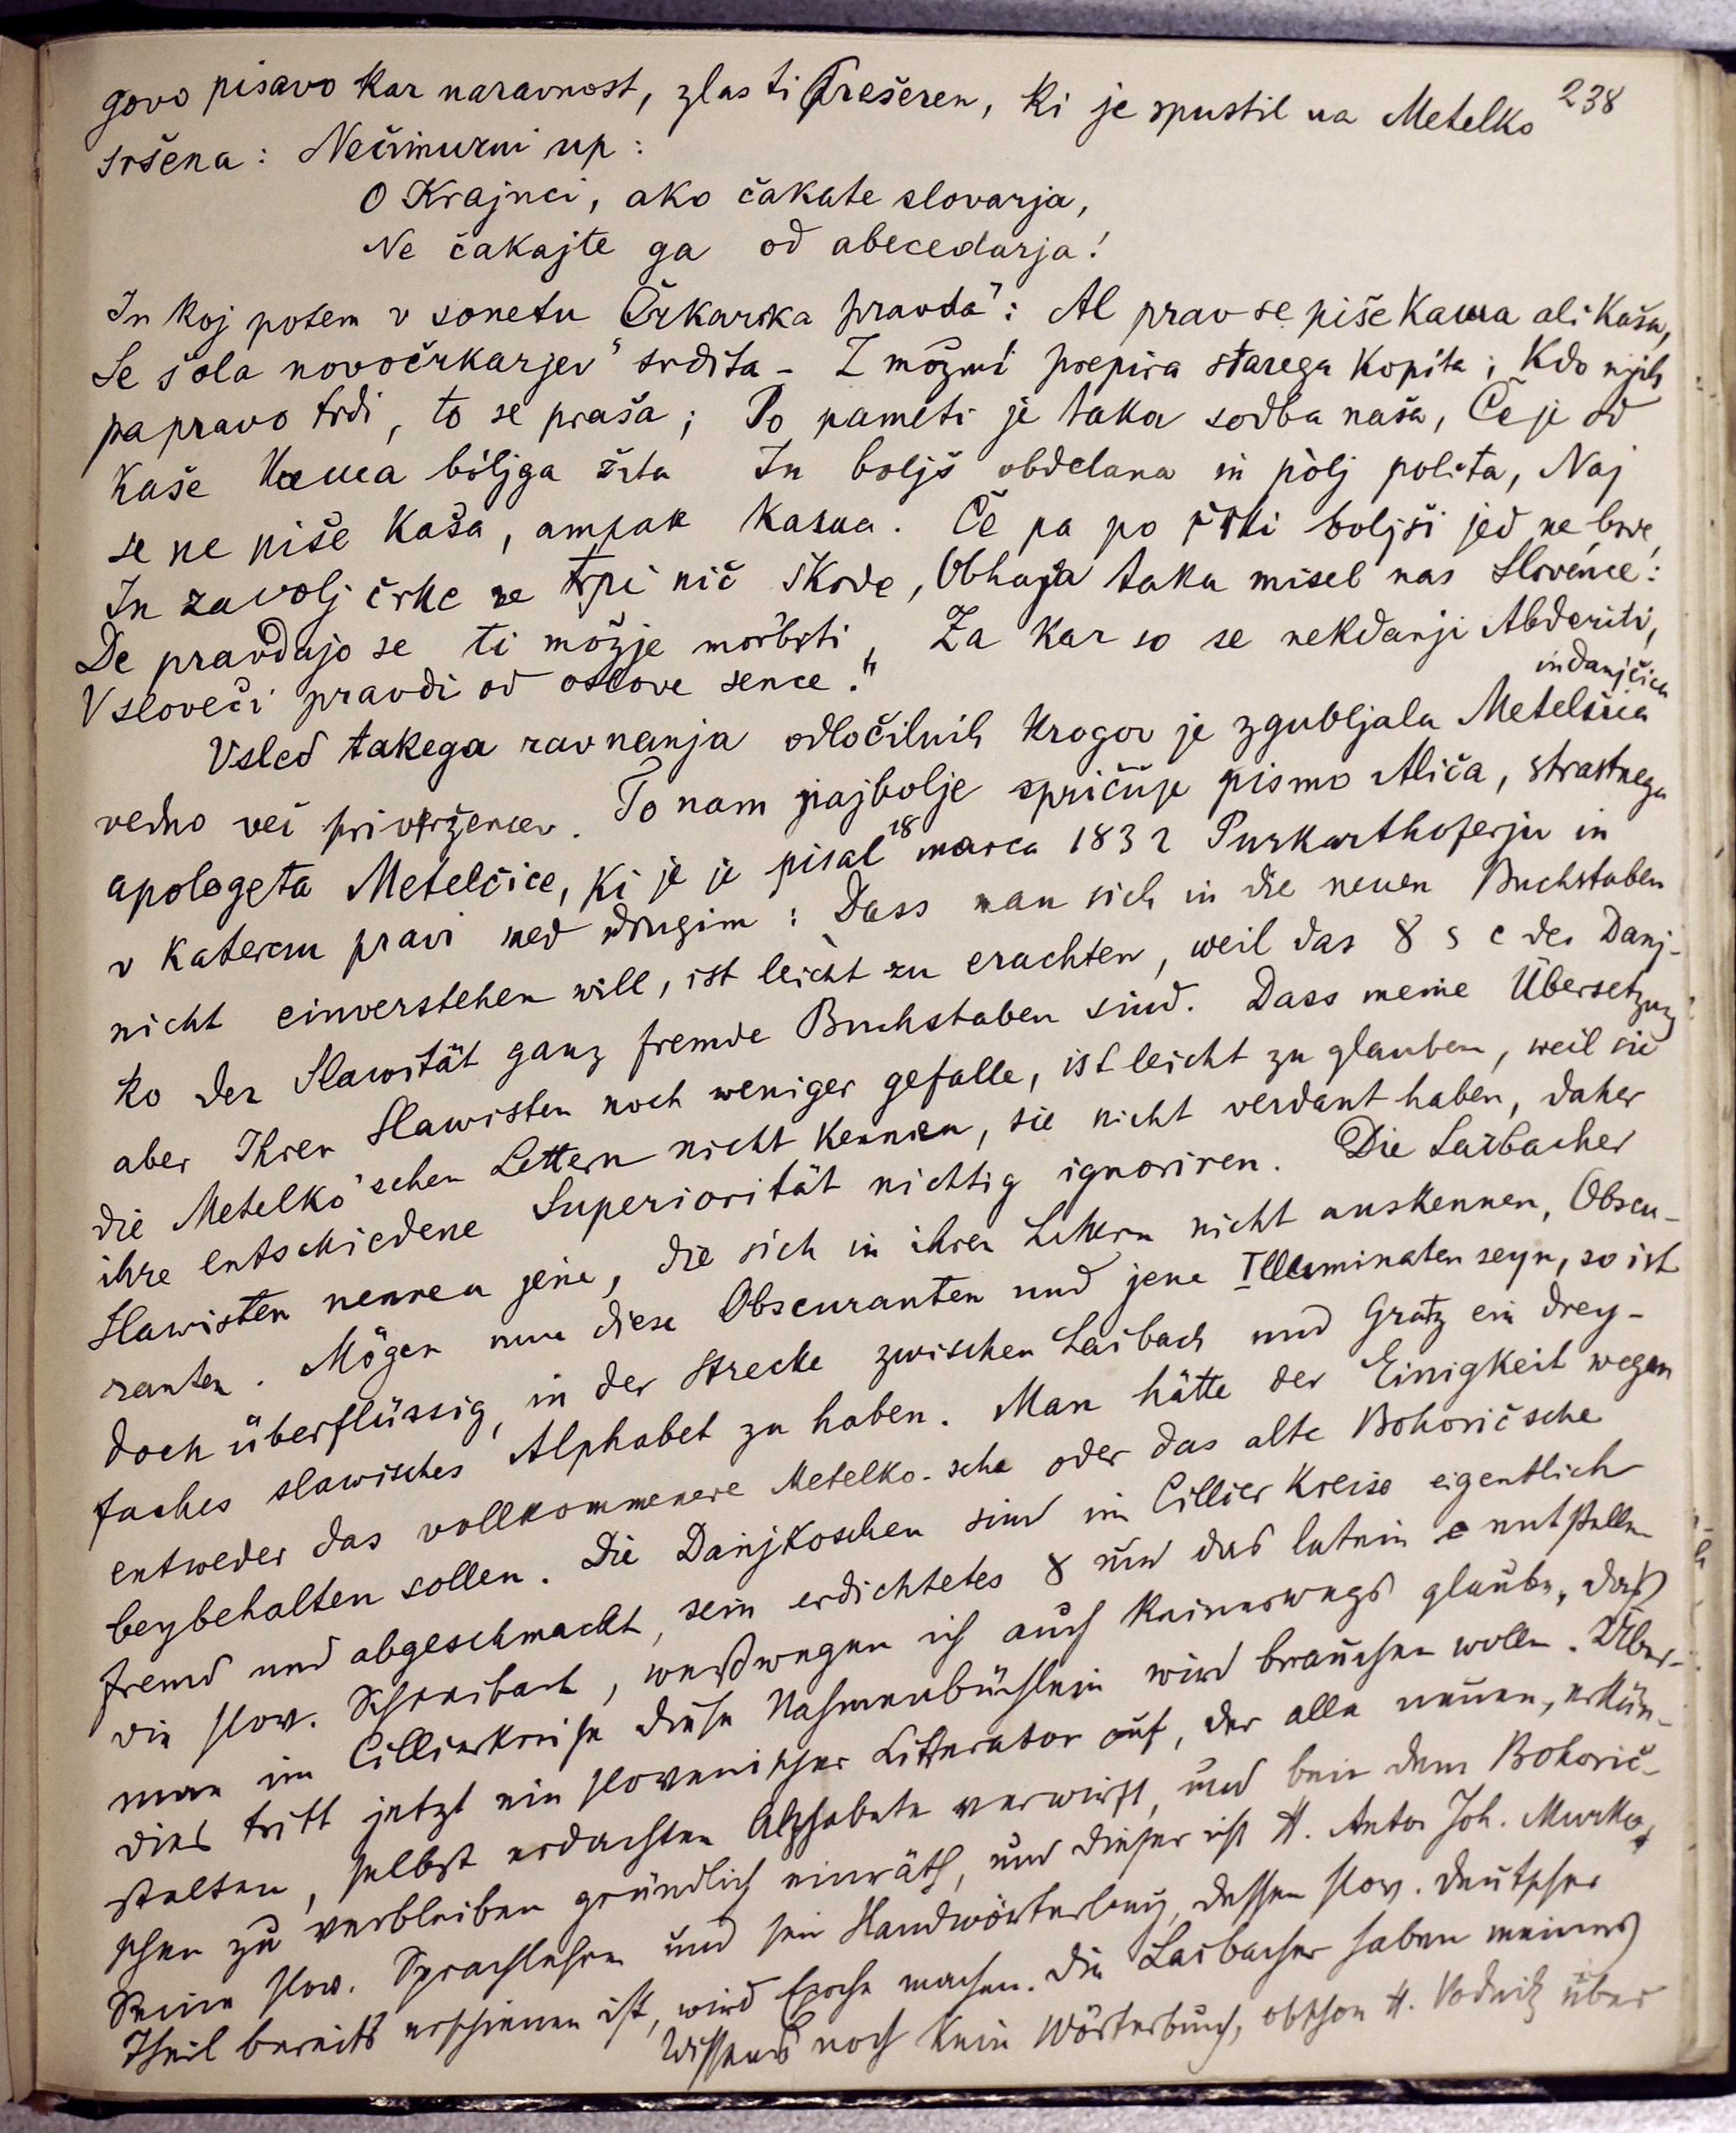 238
govo pisavo kar naravnost, zlasti Prešeren, ki je spustil na Metelko
sršena: Nečimurni up:
O Krajnci, ako čakate slovarja,
Ne čakajte ga od abecedarja!
In koj potem v sonetu Črkarska pravda": Al prav se piše kaшa ali kaša,
Se šola novočrkarjev srdita - Z možmi prepira starega kopita; Kdo njih
pa pravo trdi, to se praša; Po pameti je taka sodba naša, Če je od
kaše kaшa bóljga žita In boljš obdelana in pòlj polita, Naj
se ne piše kaša, ampak kaшa. Če pa po črki boljši jed ne bode,
In zavolj črke ne trpi nič škode, Obhaja taka misel nas Slovénce:
De pravdajo se ti možje morbiti, Za kar so se nekdanji Abderiti,
V sloveči pravdi od oslove sence."
Vsled takega ravnanja odločilnih krogov je zgubljala Metelčica in danjčica
vedno več privržencev. To nam najbolje spričuje pismo Aliča, strastnega
apologeta Metelčice, ki je je pisal 18 marca 1832 Purkarthoferju in
v katerem pravi med drugim: Dass man sich in die neuen Buchstaben
nicht einverstehen will, ist leicht zu erachten, weil das 8 s c des Danj-
ko der Slawität ganz fremde Buchstaben sind. Dass meine Übersetzung
aber Ihren Slawisten noch weniger gefalle, ist leicht zu glauben, weil sie
die Metelko'schen Lettern nicht kennen, sie nicht verdaut haben, daher
ihre entschiedene Superiorität nichtig ignoriren. Die Laibacher
Slawisten nennen jene, die sich in ihren Lettern nicht auskennen, Obscu-
ranten. Mögen nun diese Obscuranten und jene Illuminaten seyn, so ist
doch überflüssig, in der Strecke zwischen Laibach und Gratz ein drey-
faches slawisches Alphabet zu haben. Man hätte der Einigkeit wegen
entweder das vollkommenere Metelko-sche oder das alte Bohoričsche
beybehalten sollen. Die Danjkoschen sind im Cillier Kreise eigentlich
fremd und abgeschmackt, sein erdichtetes 8 und das latein c entstellen
die slow. Schreibart, weßwegen ich auch keineswegs glaube, daß
man im Cillierkreise diese Nahmenbüchlein wird brauchen wollen. Über-
dies tritt jetzt ein slovenischer Litterator auf, der alle neuen, erkün-
stelten, selbst erdachten Alphabete verwirft, und bei dem Bohorič-
schen zu verbleiben gründlich einräth, und dieser ist H. Anton Joh. Murko,
Seine slow. Sprachlehre und sein Handwörterbuch, dessen slow. deutscher
Theil bereits erschienen ist, wird Epoche machen. Die Laibacher haben meines
Wissens noch kein Wörterbuch, obschon H. Vodnik über